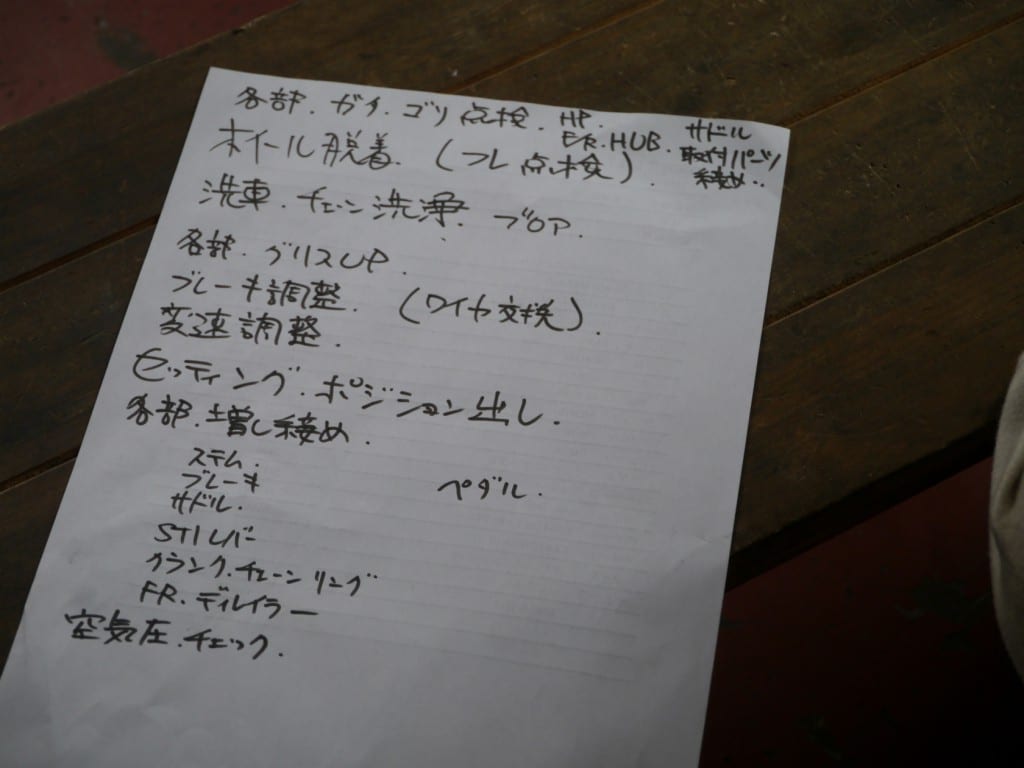 各部.ガタ.ゴリ点検.HP.
F.R.HUB.
サドル
取付パーツ
締め..
ホイール脱着.(フレ点検).
洗車.チェーン洗浄.ブロア.
各部.グリスUP.
ブレーキ調整.(ワイヤ交換).
変速調整.
セッティング.ポジション出し.
各部.増し締め.
ステム.
ブレーキ
ペダル.
サドル.
STIレバー
クランク.チェーンリング
FR.ディレイラー
空気圧.チェック.